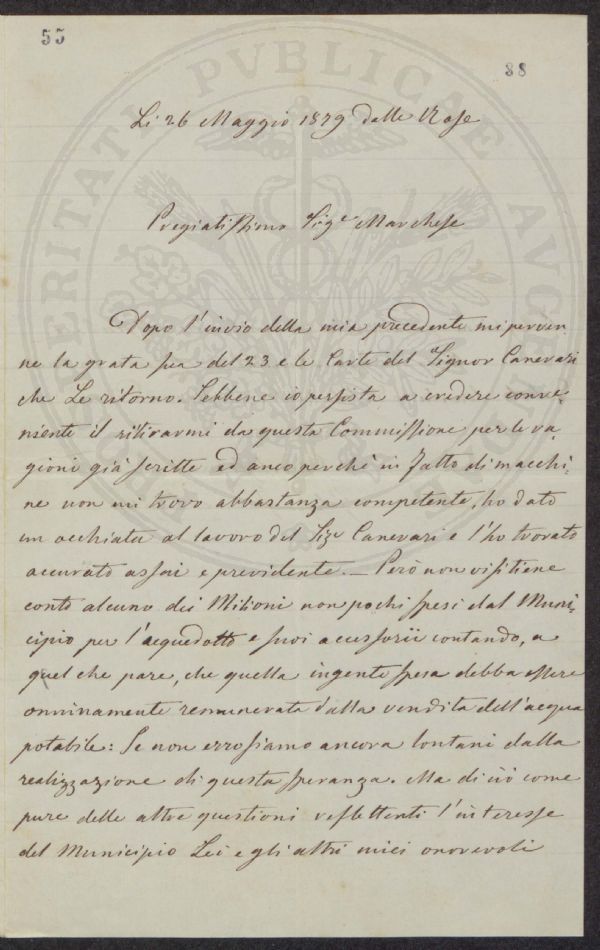 55
88
PVBLICAE
Li 26 Maggio 1879 dalle Rose
Pregiatissimo Sigr Marchese
Dopo l'invio della mia precedente mi perven
ne la grata sua del 23 e le Carte del Signor Canevari
che Le ritorno. Sebbene io persista a credere conve-
niente il ritirarmi da questa Commissione per le ra-
gioni già scritte ed anco perchè in fatto di macchi-
ne non mi trovo abbastanza competente, ho dato
un occhiata al lavoro del Sigr Canevari e l'ho trovato
accurato assai e previdente. — Però non vi si tiene
conto alcuno dei Milioni non pochi spesi dal Muni-
cipio per l'acquedotto e suoi accessorii contando, a
quel che pare, che quella ingente spesa debba essere
onninamente remunerata dalla vendita dell'acqua
potabile: Se non erro siamo ancora lontani dalla
realizzazione di questa speranza. Ma di ciò come
pure delle altre questioni reflettenti l'interesse
del Municipio Lei e gli altri miei onorevoli